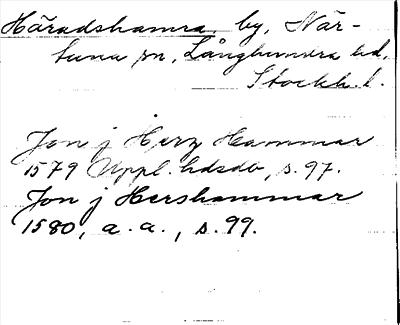 Häradshamra, by, När-
tuna sn, Långhundra hd,
Stockh. l.
Jon j Herz Hammar
1579 Uppl. hdsdb, s. 97.
Jon j Hershammar
1580, a. a., s. 99.